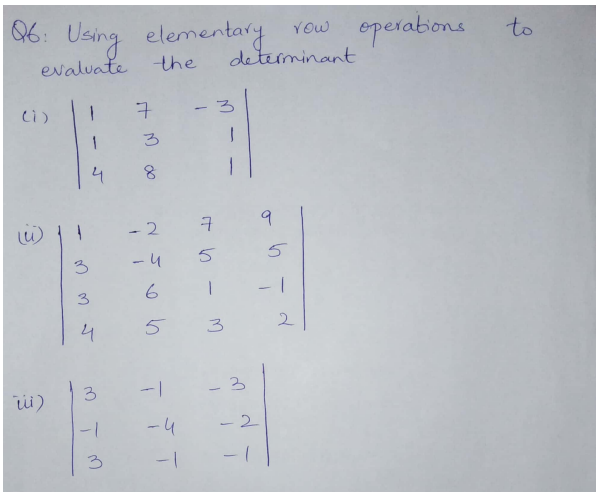 Q6: Using elementary row operations to
evaluate the determinant
(i) | 1 7 -3 |
| 1 3 1 |
| 4 8 1 |
(ii) | 1 -2 7 9 |
| 3 -4 5 5 |
| 3 6 1 -1 |
| 4 5 3 2 |
iii) | 3 -1 -3 |
| -1 -4 -2 |
| 3 -1 -1 |